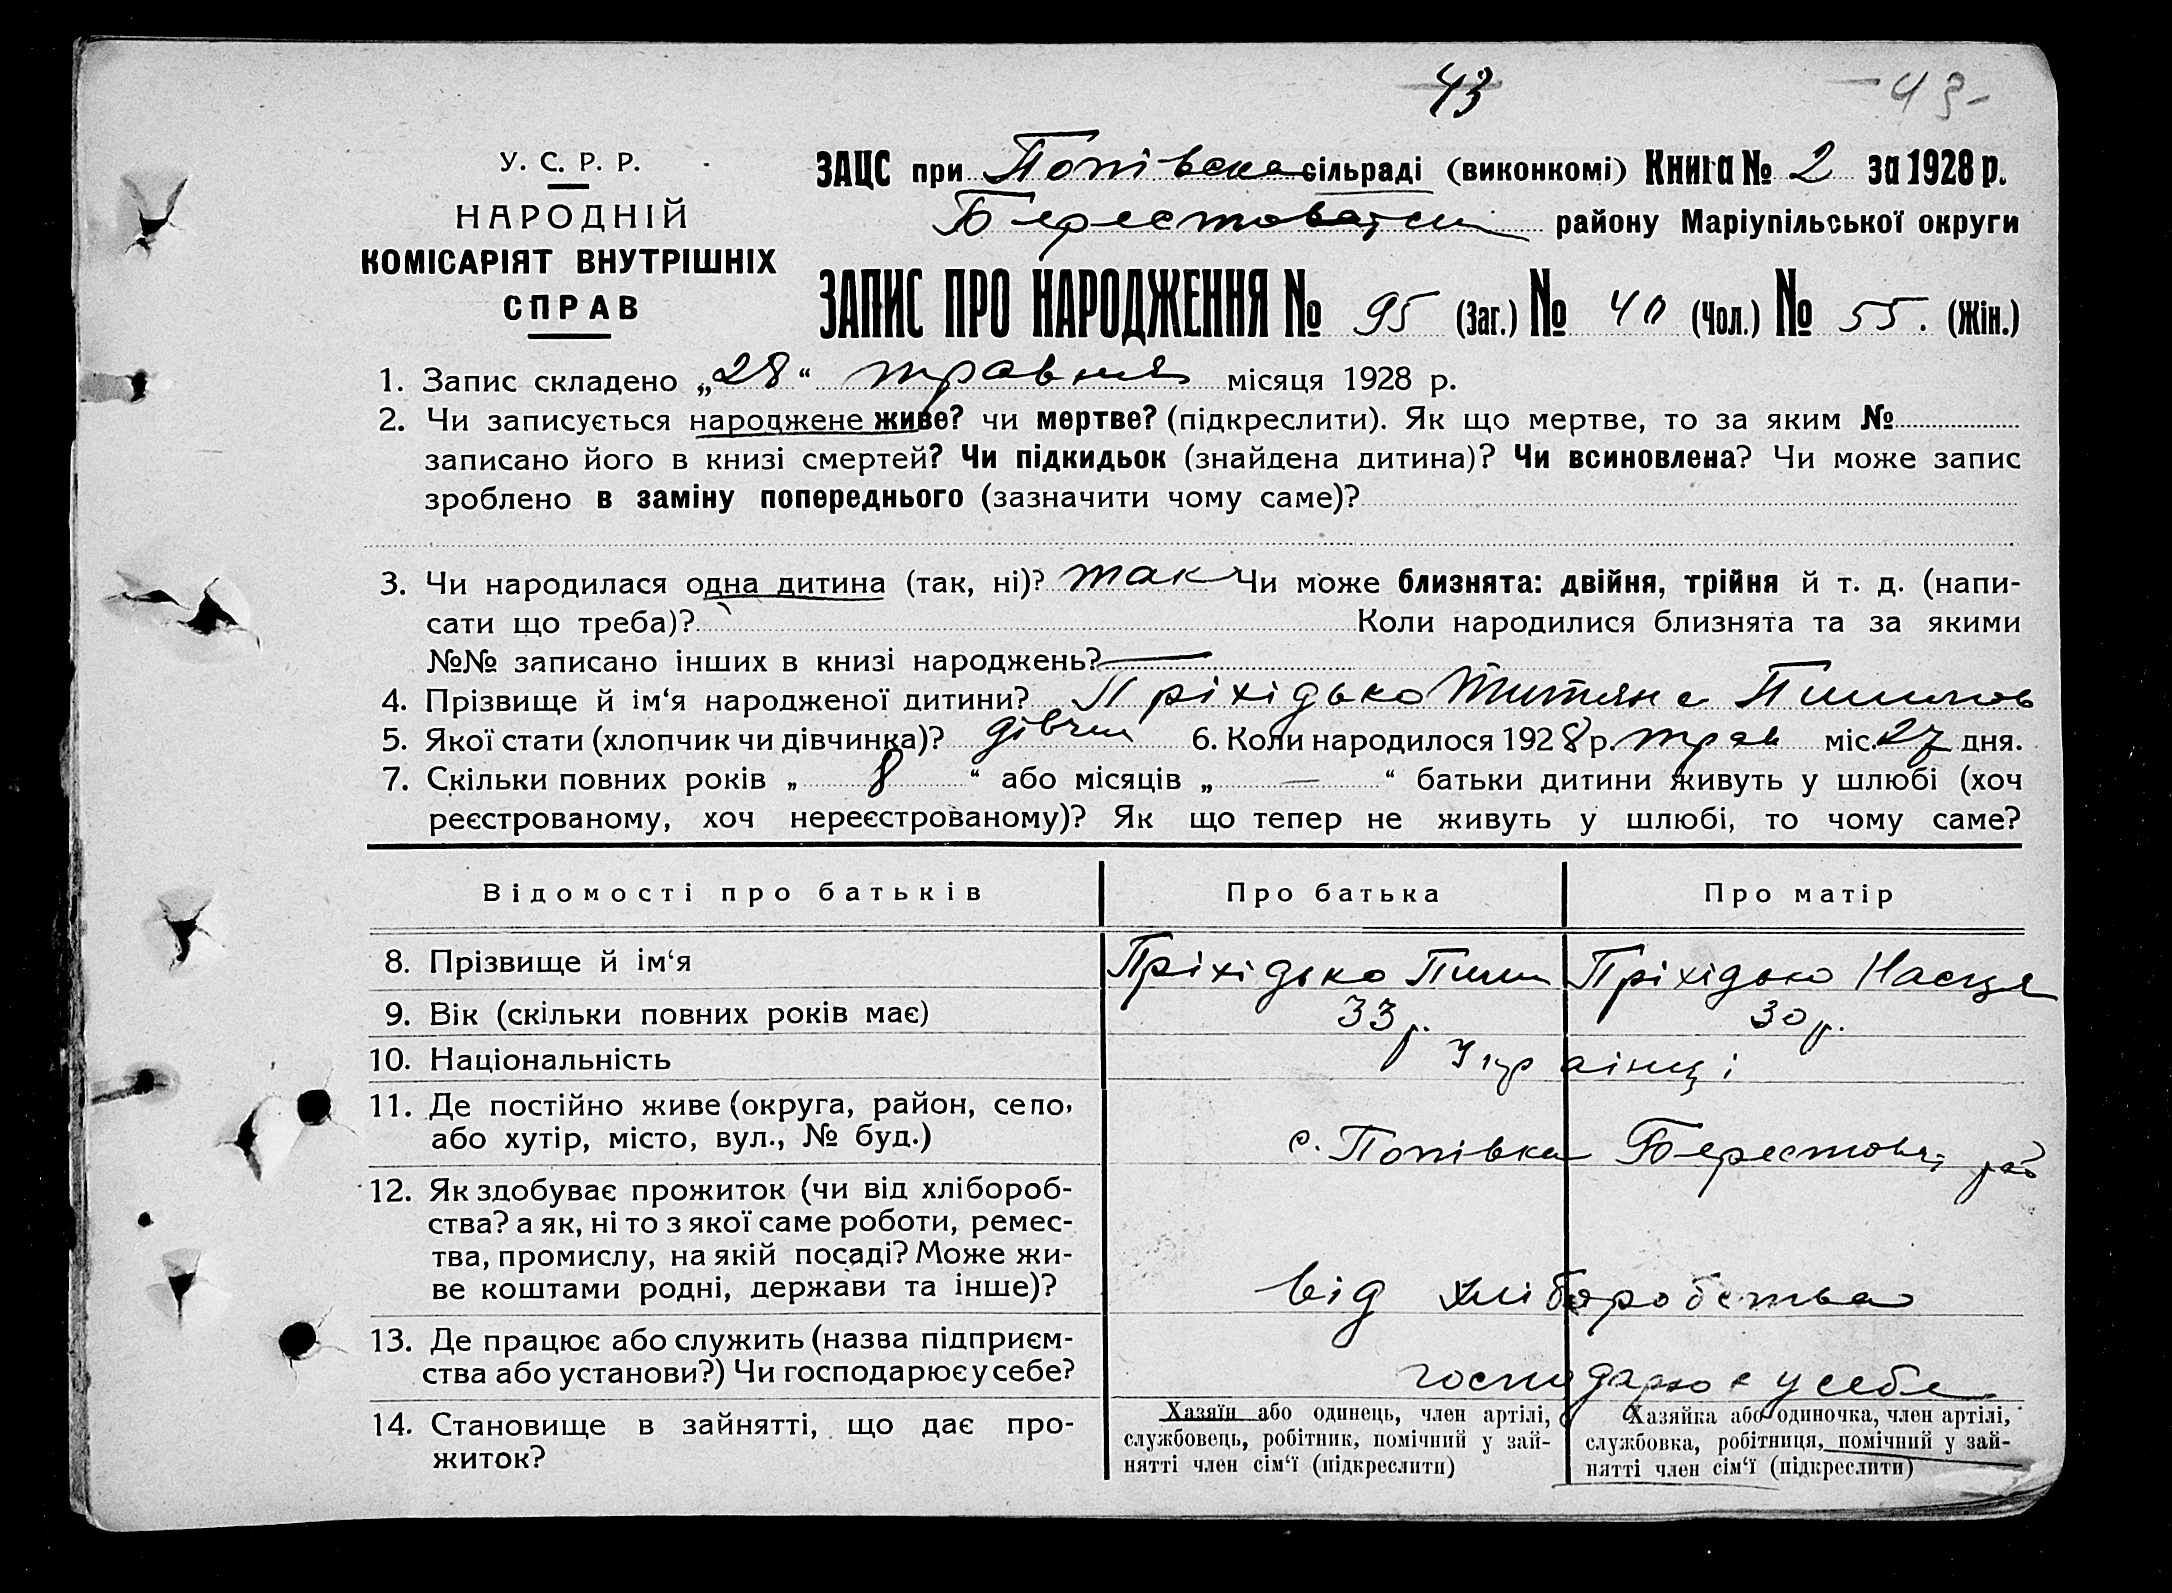 43
- 43 -
У. С. Р. Р.
НАРОДНІЙ
КОМІСАРІЯТ ВНУТРІШНІХ
СПРАВ
ЗАЦС при Попівска сільраді (виконкомі) Книга № 2 за 1928 р.
району Маріупільської округи
ЗАПИС ПРО НАРОДЖЕННЯ № 95 (Заг.) № 40 (Чол.) № 55. (Жін.)
1. Запис складено „28“ травня місяця 1928 р.
2. Чи записується народжене живе? чи мертве? (підкреслити). Як що мертве, то за яким №
записано його в книзі смертей? Чи підкидьок (знайдена дитина)? Чи всиновлена? Чи може запис
зроблено в заміну попереднього (зазначити чому саме)?
3. Чи народилася одна дитина (так, ні)? так Чи може близнята: двійня, трійня й т. д. (напи-
сати що треба)? Коли народилися близнята та за якими
№№ записано інших в книзі народжень? —
4. Прізвище й ім‘я народженої дитини? Пріхідько
5. Якої стати (хлопчик чи дівчинка)? дівчи 6. Коли народилося 1928 р. трав міс. 27 дня.
7. Скільки повних років „ 8 “ або місяців „ — “ батьки дитини живуть у шлюбі (хоч
реєстрованому, хоч нереєстрованому)? Як що тепер не живуть у шлюбі, то чому саме?
Відомості про батьків Про батька Про матір
8. Прізвище й ім‘я Пріхідько Пріхідько
9. Вік (скільки повних років має) 33 р. 30 р.
10. Національність Українці
11. Де постійно живе (округа, район, село,
або хутір, місто, вул., № буд.) с. Попівка
12. Як здобуває прожиток (чи від хлібороб-
ства? а як, ні то з якої саме роботи, ремес-
тва, промислу, на якій посаді? Може жи-
ве коштами родні, держави та інше)? від хліборобства
13. Де працює або служить (назва підприєм-
ства або установи?) Чи господарює у себе? господарює у себе
14. Становище в зайнятті, що дає про-
житок?
Хазяїн або одинець, член артілі,
службовець, робітник, помічний у зай-
нятті член сім‘ї (підкреслити)
Хазяйка або одиночка, член артілі,
службовка, робітниця, помічний у зай-
нятті член сім‘ї (підкреслити)